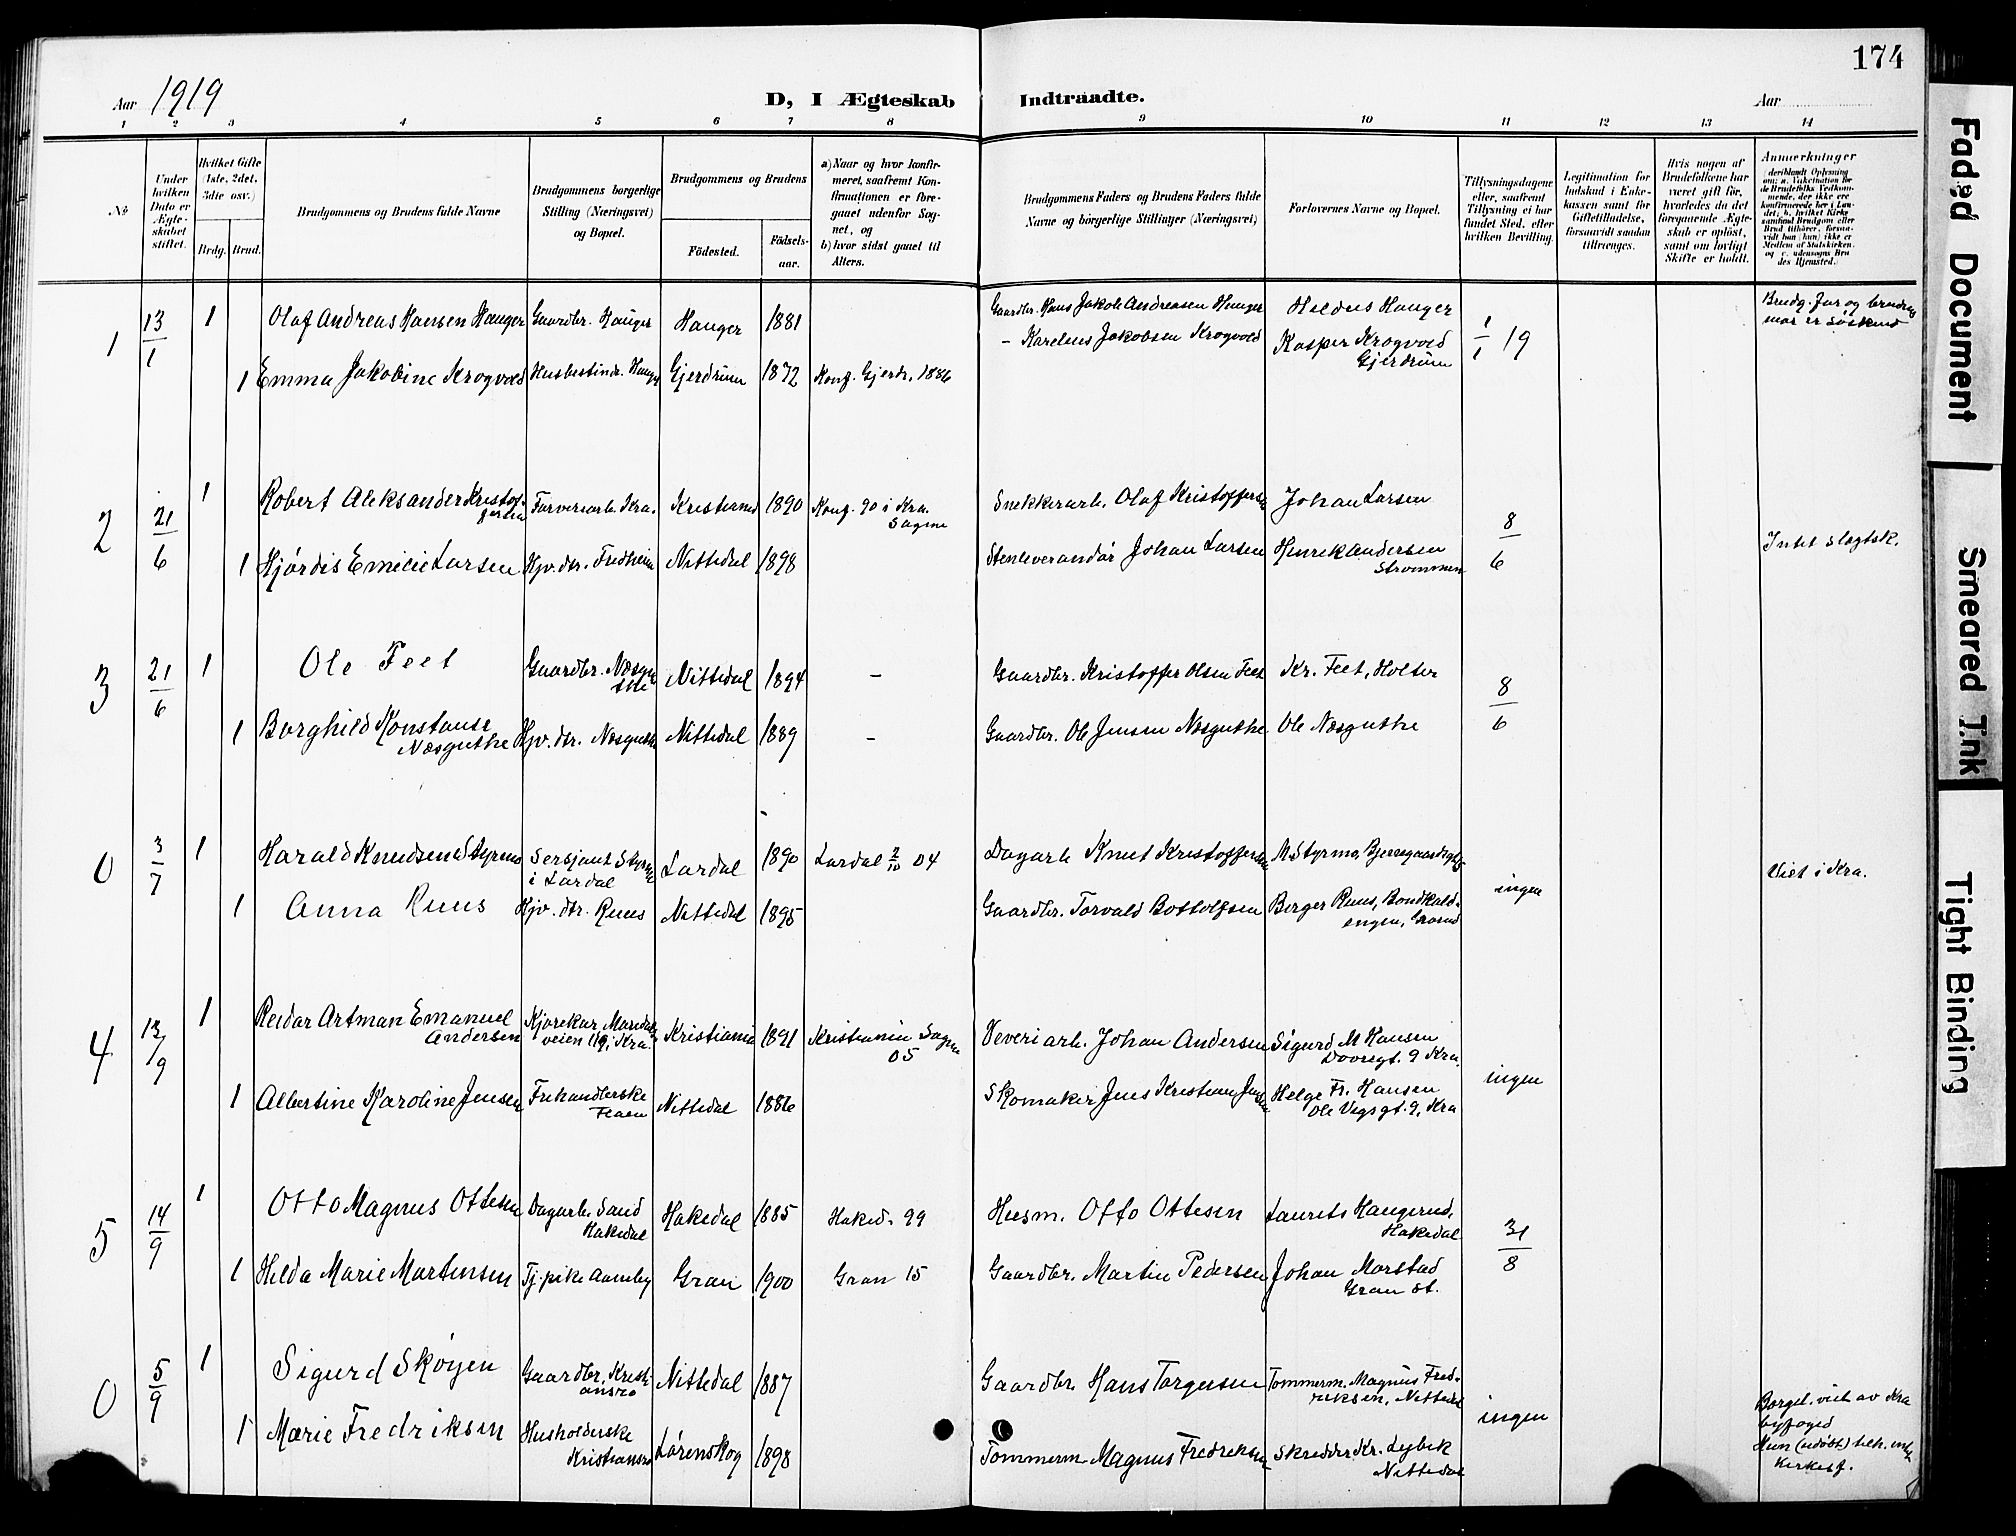 174
Aar 1919
D, I Ægteskab Indtraadte.
Aar
1 2 3 4 5 6 7 8 9 10 11 12 13 14
No.
Under hvilken Dato er Ægteskabet stiftet.
Hvilket Gifte (1ste, 2det, 3die osv.)
Brdg. Brud.
Brudgommens og Brudens fulde Navne
Brudgommens borgerlige Stilling (Næringsvei) og Bopæl.
Brudgommens og Brudens
Födested.
Födsels-aar.
a) Naar og hvor konfirmeret, saafremt Konfirmationen er foregaaet udenfor Sognet, og
b) hvor sidst gaaet til Alters.
Brudgommens Faders og Brudens Faders fulde Navne og borgerlige Stillinger (Næringsvei)
Forlovernes Navne og Bopæl.
Tillysningsdagene eller, saafremt Tillysning ei har fundet Sted, efter hvilken Bevilling.
Legitimation for Indskud i Enkekassen samt for Giftetilladelse, forsaavidt saadan tiltrænges.
Hvis nogen af Brudefolkene har været gift før, hvorledes da det foregaaende Ægteskab er opløst, samt om lovligt Skifte er holdt.
Anmærkninger (deriblandt Oplysning om: a. Vakcination for de Brudefolks Vedkommende, der ikke ere konfirmerede her i Landet; b. hvilket Kirkesamfund Brudgom eller Brud tilhører, forsaavidt han (hun) ikke er Medlem af Statskirken, og c. udensogns Brudes Hjemsted.)
1 13/1 1 Olaf Andreas Hansen Hauger Gaardbr. Hauger Hauger 1881 Gaardbr. Hans Jakob Andreasen Hauger Heldus Hauger 1/1 19 Brudg. far og brudens mor er søskend
1 Emma Jakobine Krogvold Husbestindr. Hauger Gjerdrum 1872 Konf. Gjerdr. 1886 - Karelius Jakobsen Krogvold Kasper Krogvold Gjerdrum
2 21/6 1 Robert Aleksander Kristoffersen Farveriarb. Kra. Kristiania 1890 Konf. 90 i Kra. Sagene Snekkerarb. Olaf Kristoffersen Johan Larsen 8/6 Intet slegtsk.
1 Hjørdis Emilie Larsen Hjv. dtr. Fredheim Nittedal 1898 Stenleverandør Johan Larsen Henrik Andersen Strømmen
3 21/6 1 Ole Feet Gaardbr. Næsguthe Nittedal 1894 - Gaardbr. Kristoffer Olsen Feet Kr. Feet, Holter 8/6
1 Borghild Konstanse Næsguthe Hjv. dtr. Næsguthe Nittedal 1889 - Gaardbr. Ole Jensen Næsguthe Ole Næsguthe
0 3/7 1 Harald Knudsen Styrmo Sersjant Styrmo i Lardal Lardal 1890 Lardal 2/10 04 Dagarb. Knut Kristoffersen M. Styrmo, ingen Viet i Kra.
1 Anna Ruus Hjv. dtr. Ruus Nittedal 1895 Gaardbr. Torvald Bottolfsen Birger Ruus, Grorud
4 13/9 1 Reidar Artman Emanuel Andersen Kjørekar, Maridalsveien 119, Kra. Kristiania 1891 Kristiania Sagene 05 Veveriarb. Johan Andersen Sigurd M Hansen Dovregt. 9 Kra. ingen
1 Albertine Karoline Jensen Frhandlerske Nittedal 1886 Skomaker Jens Kristian Jensen Helge Fr. Hansen Ole Vigsgt. 9, Kra
5 14/9 1 Otto Magnus Ottesen Dagarb. Sand Hakedal Hakedal 1885 Haked. 99 Husm. Otto Ottesen Laurits Haugerud, Hakedal 31/8
1 Helda Marie Martinsen Tj. pike Aaneby Gran 1900 Gran 15 Gaardbr. Martin Pedersen Johan Morstad Gran st.
0 5/9 1 Sigurd Skøyen Gaardbr. Kristiansro Nittedal 1887 Gaardbr. Hans Torgersen Tømmerm. Magnus Fredriksen, Nittedal ingen Borgel. viet av Kra byfoged
1 Marie Fredriksen Husholderske Kristiansro Lørenskog 1898 Tømmerm Magnus Fredriksen Skrædder Kr. Lybek Nittedal Hun (udøbt) kirkesf.
Faded Document
Smeared Ink
Tight Binding